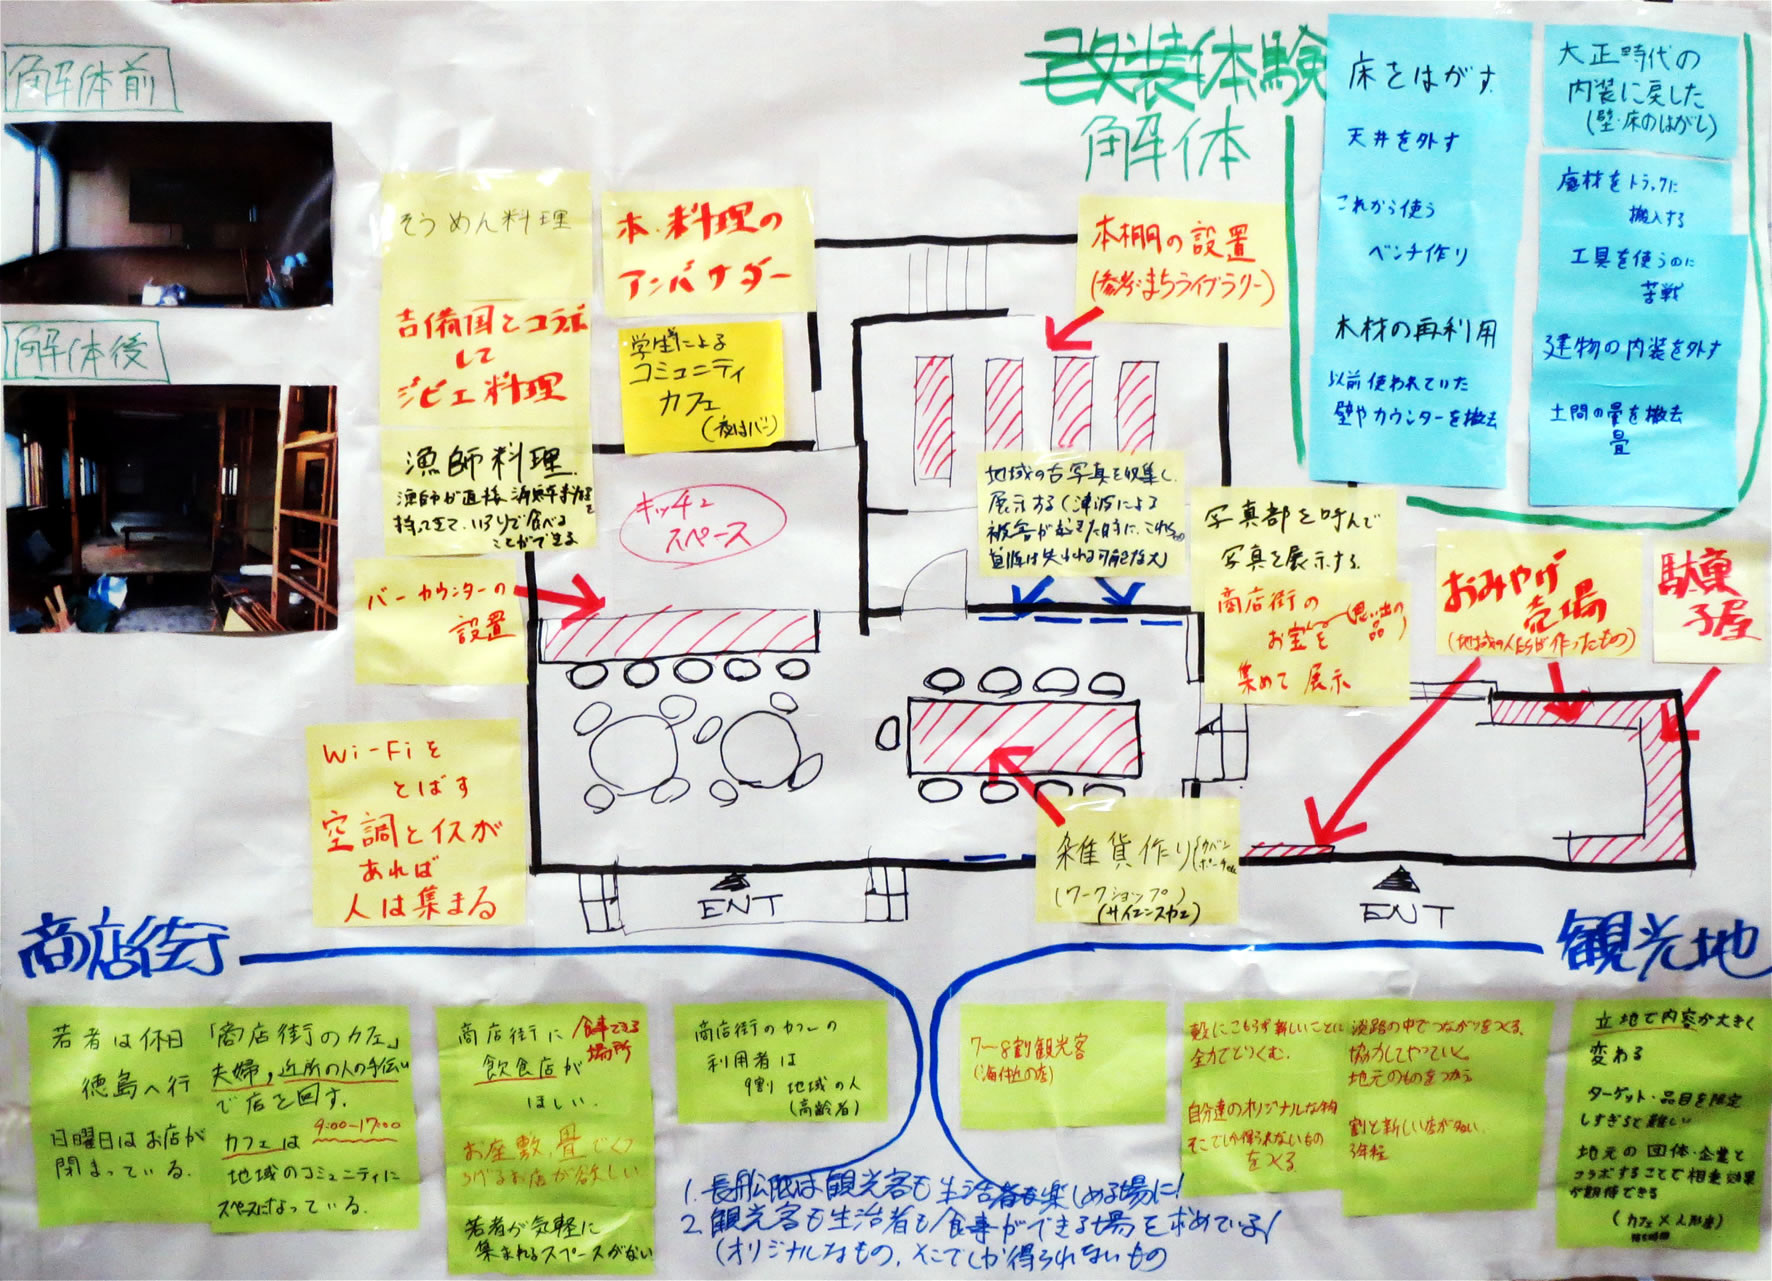 解体前
解体後
改装体験
解体
床をはがす
天井を外す
これから使う
ベンチ作り
木材の再利用
以前使われていた
壁やカウンターを撤去
大正時代の
内装に戻した
(壁・床のはがし)
廃材をトラックに
搬入する
工具を使うのに
苦戦
建物の内装を外す
土間の畳を撤去
畳
そうめん料理
吉備国とコラボ
して
ジビエ料理
漁師料理
漁師が直接
持ってきて、いろりで食べる
ことができる
本・料理の
アンバサダー
学生による
コミュニティ
カフェ
(夜はバー)
本棚の設置
(参考:まちライブラリー)
キッチン
スペース
地域の古写真を収集し、
展示する(津波による
被害が起きた時に、これらの
写真部を呼んで
写真を展示する
商店街の
お宝を(思い出の品)
集めて展示
おみやげ
売場
(地域の人たちが作ったもの)
駄菓
子屋
バーカウンターの
設置
Wi-Fiを
とばす
空調とイスが
あれば
人は集まる
雑貨作り
(ワークショップ)
(サイエンスカフェ)
ENT
ENT
商店街
観光地
若者は休日
徳島へ行
日曜日はお店が
閉まっている。
「商店街のカフェ」
夫婦,近所の人の手伝い
で店を回す。
カフェは 9:00-17:00
地域のコミュニティに
スペースになっている。
商店街に 食事できる場所
飲食店が
ほしい。
お座敷,畳でくつ
ろげるお店が欲しい
若者が気軽に
集まれるスペースがない
商店街のカフェの
利用者は
9割 地域の人
(高齢者)
7〜8割観光客
(海付近の店)
殻にこもらず新しいことに
全力でとりくむ。
自分達のオリジナルな物
そこでしか得られないもの
をつくる
淡路の中でつながりをつくる。
協力してやっていく。
地元のものをつかう
割と新しい店が多い。
3年程
立地で内容が大きく
変わる
ターゲット・品目を限定
しすぎると難しい
地元の団体・企業と
コラボすることで相乗効果
が期待できる
1. 長船限は観光客も生活者も楽しめる場に!
2. 観光客も生活者も食事ができる場を求めている!
(オリジナルなもの、そこでしか得られないもの